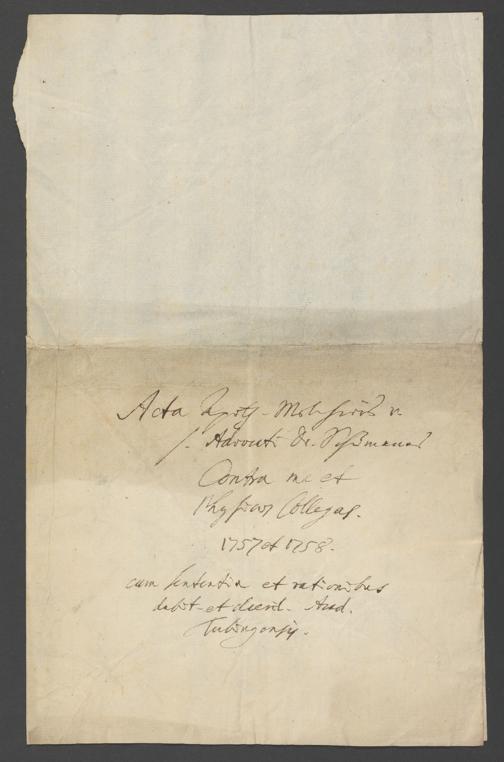 Acta
s. Advocati Dr.
Contra me et
Physicos Collegas.
1757 et 1758.
cum sententia et rationibus
dubit. et decid. Acad.
Tubingensis.